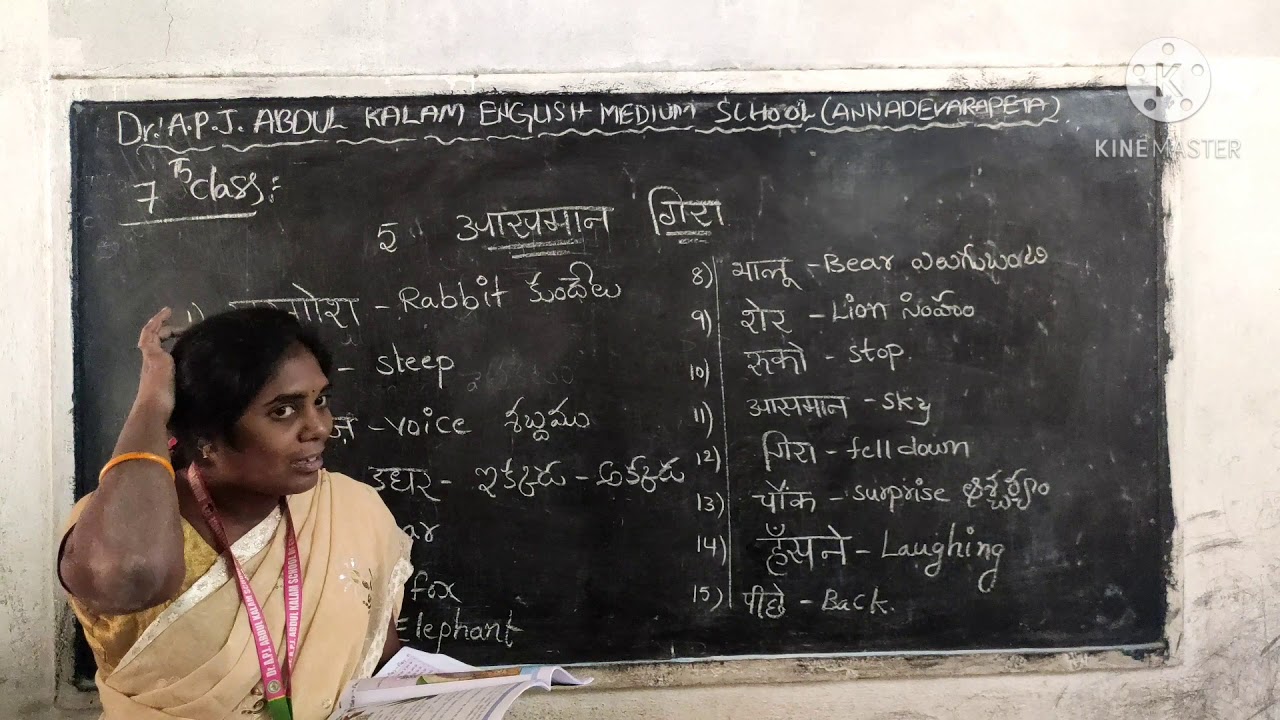 Dr. A.P.J. ABDUL KALAM ENGLISH MEDIUM SCHOOL (ANNADEVARAPETA)
7th class:
5 आसमान गिरा
- Rabbit కుందేలు
- sleep
- voice శబ్దము
- ఇక్కడ - అక్కడ
fox
Elephant
8) भालू - Bear ఎలుగుబంటి
9) शेर - Lion సింహం
10) रुको - stop.
11) आसमान - sky
12) गिरा - fell down
13) चौंक - surprise ఆశ్చర్యం
14) हँसने - Laughing
15) पीछे - Back.
Dr. A.P.J. ABDUL KALAM SCHOOL
KINEMASTER